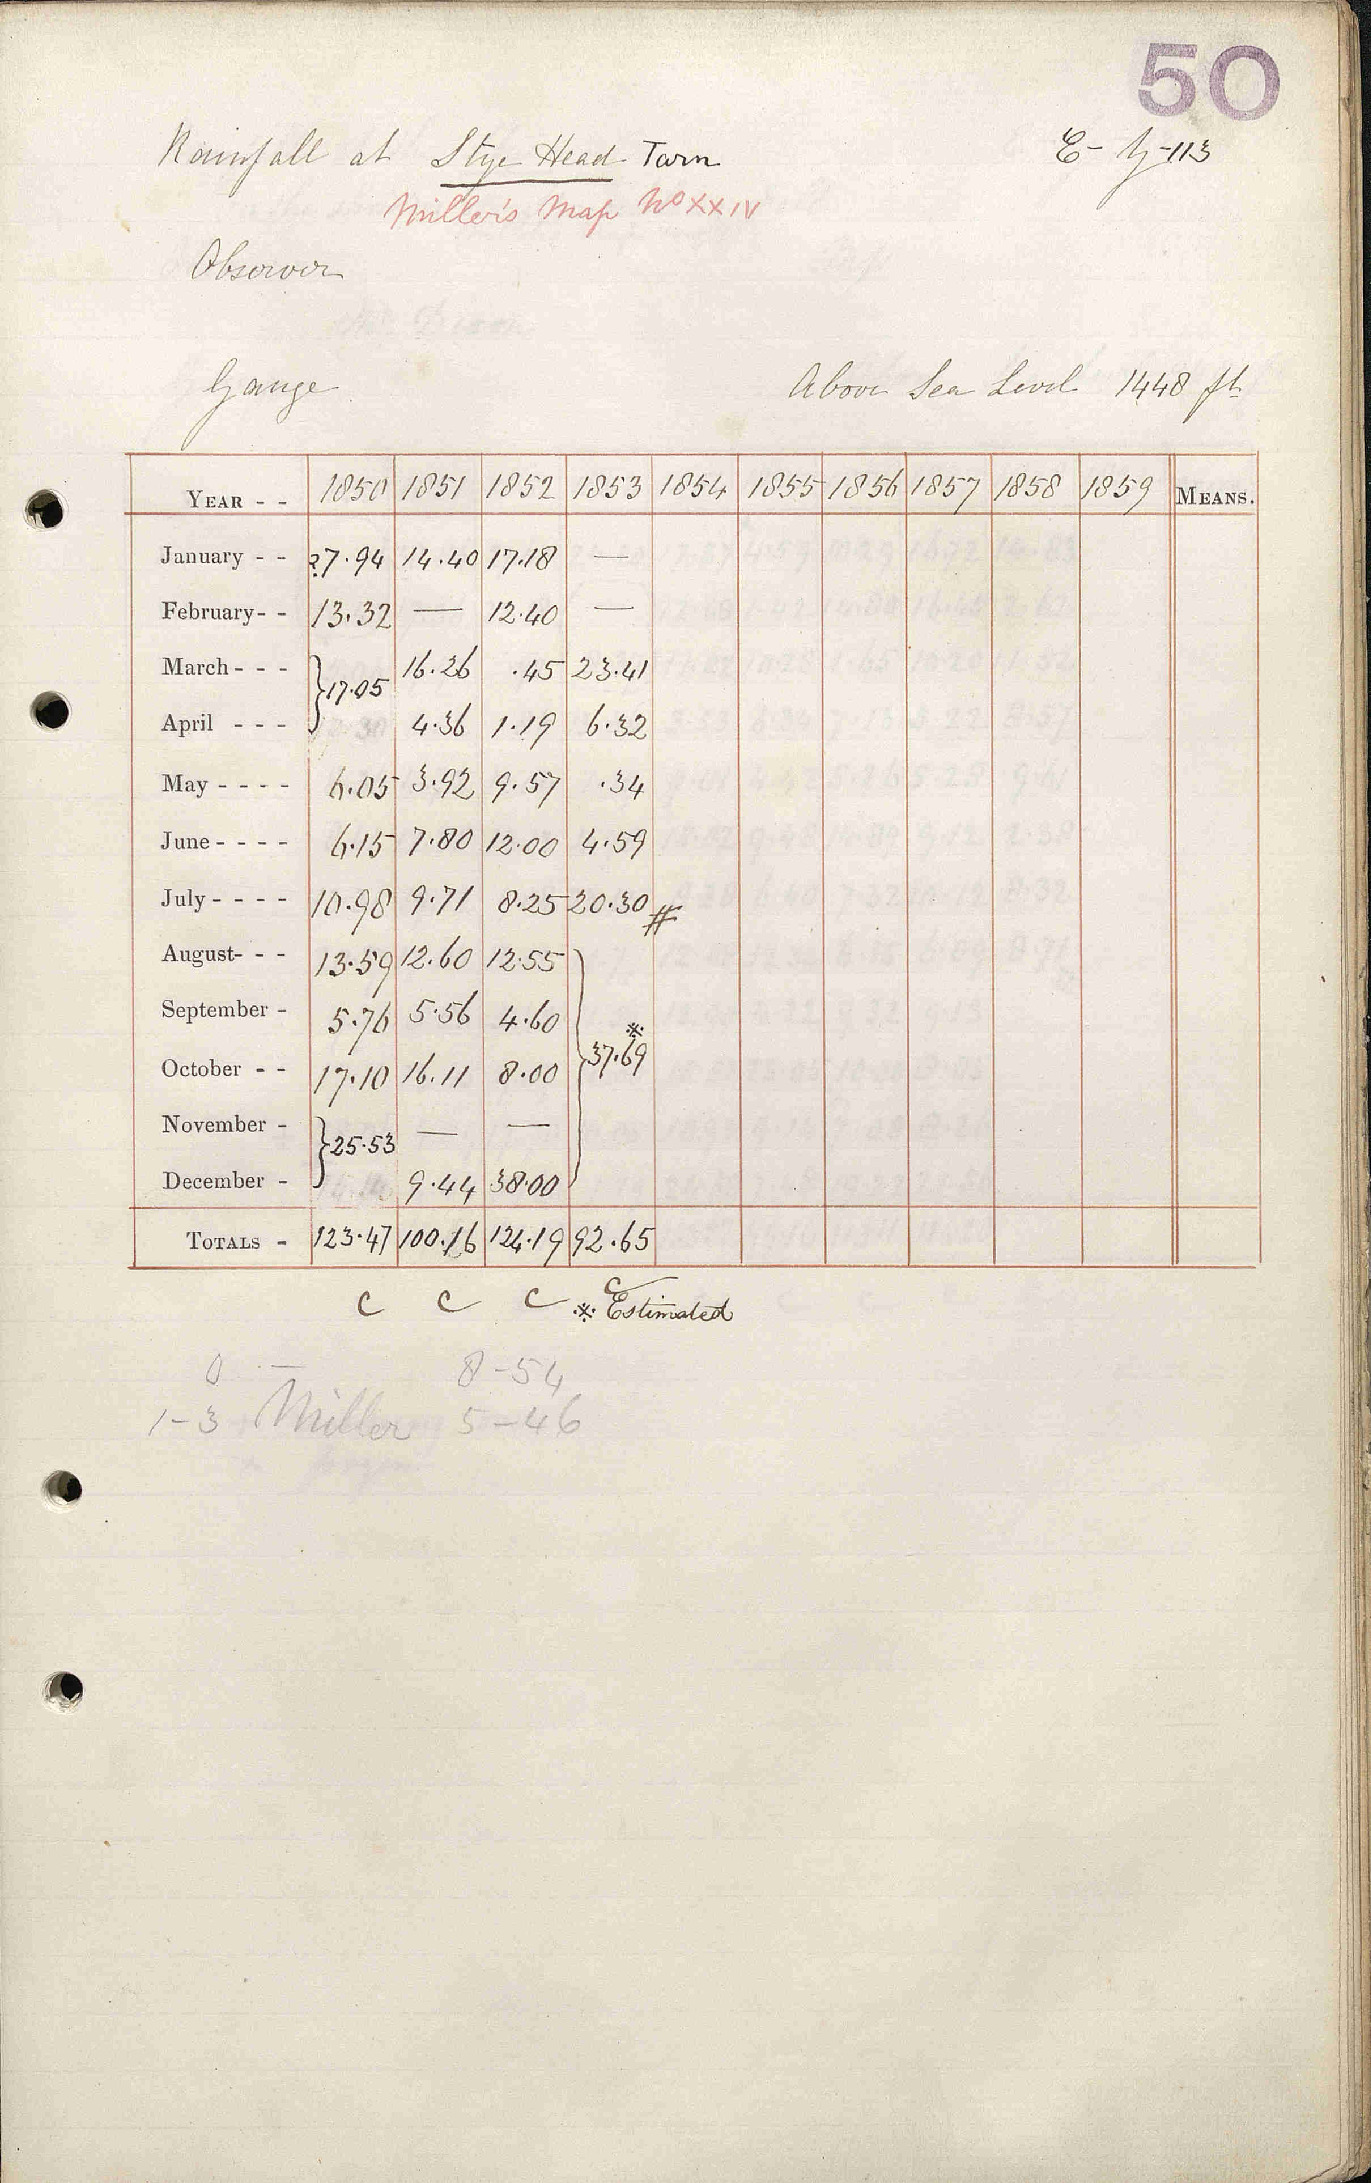 50
Rainfall at Stye Head Tarn
Miller's Map No XXIV
Observer
Gauge Above Sea Level 1448 ft
YEAR - - 1850 1851 1852 1853 1854 1855 1856 1857 1858 1859 MEANS.
January - - 27.94 14.40 17.18 —
February - - 13.32 — 12.40 —
March - - - } 17.05 16.26 .45 23.41
April - - - 4.36 1.19 6.32
May - - - - 6.05 3.92 9.57 .34
June - - - - 6.15 7.80 12.00 4.59
July - - - - 10.98 9.71 8.25 20.30 #
August- - - 13.59 12.60 12.55 }
September - 5.76 5.56 4.60 ※
October - - 17.10 16.11 8.00 37.69
November - } 25.53 — —
December - 9.44 38.00
TOTALS - 123.47 100.16 124.19 92.65
C C C C
※ Estimated
0 — 8-54
1-3 Miller 5-46